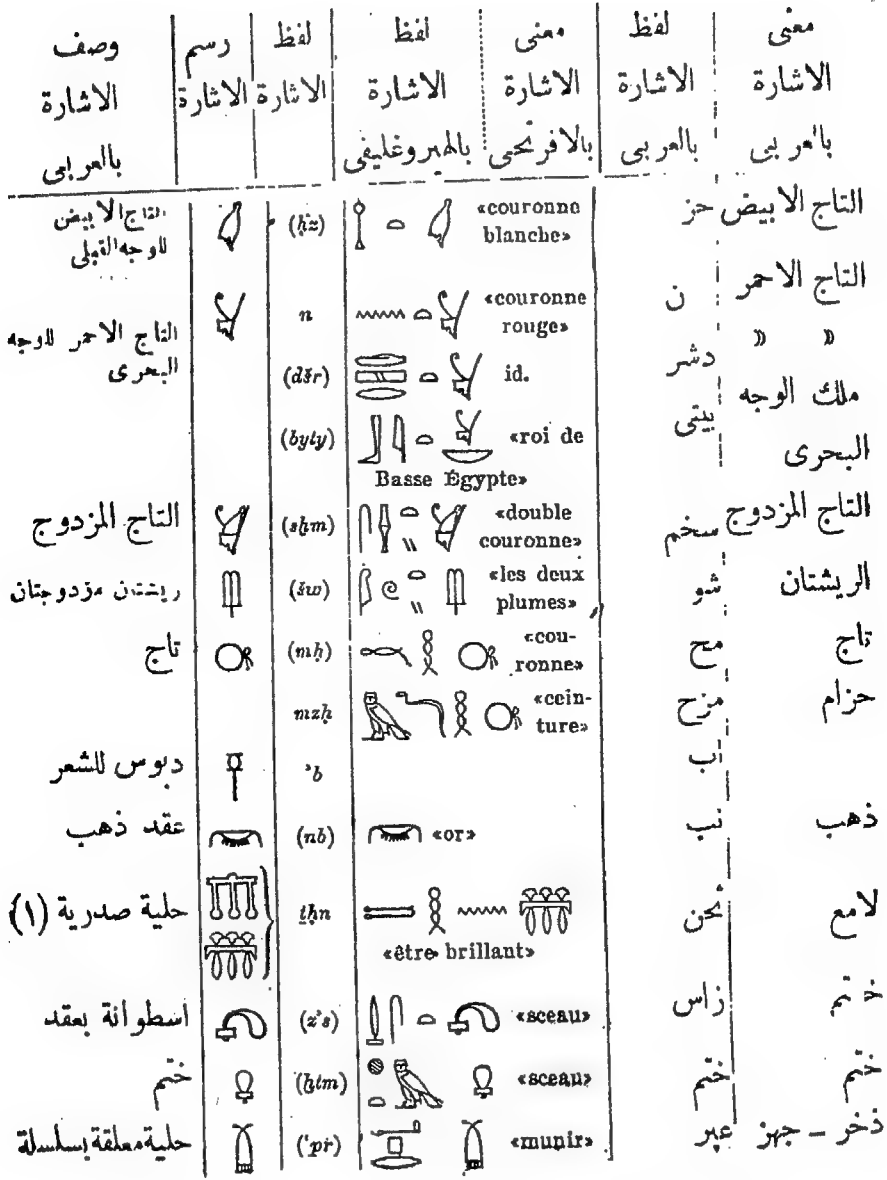 معنى الاشارة بالعربى | لفظ الاشارة بالعربى | معنى الاشارة بالافرنجى | لفظ الاشارة بالهيروغليفى | لفظ الاشارة | رسم الاشارة | وصف الاشارة بالعربى
التاج الابيض | حز | «couronne blanche» | (ḥz) | التاج الابيض للوجه القبلى
التاج الاحمر | ن | «couronne rouge» | n | التاج الاحمر للوجه البحرى
» » | دشر | id. | (dšr)
ملك الوجه البحرى | بيتى | «roi de Basse Égypte» | (byty)
التاج المزدوج | سخم | «double couronne» | (sḫm) | التاج المزدوج
الريشتان | شو | «les deux plumes» | (šw) | ريشتان مزدوجتان
تاج | مح | «cou-ronne» | (mḥ) | تاج
حزام | مزح | «cein-ture» | mzḥ
اب | ꜣb | دبوس للشعر
ذهب | نب | «or» | (nb) | عقد ذهب
لامع | ثحن | «être brillant» | ṯḥn | حلية صدرية (١)
ختم | زاس | «sceau» | (zꜣs) | اسطوانة بعقد
ختم | ختم | «sceau» | (ḫtm) | ختم
ذخر - جهز | عپر | «munir» | (ꜥpr) | حلية معلقة بسلسلة